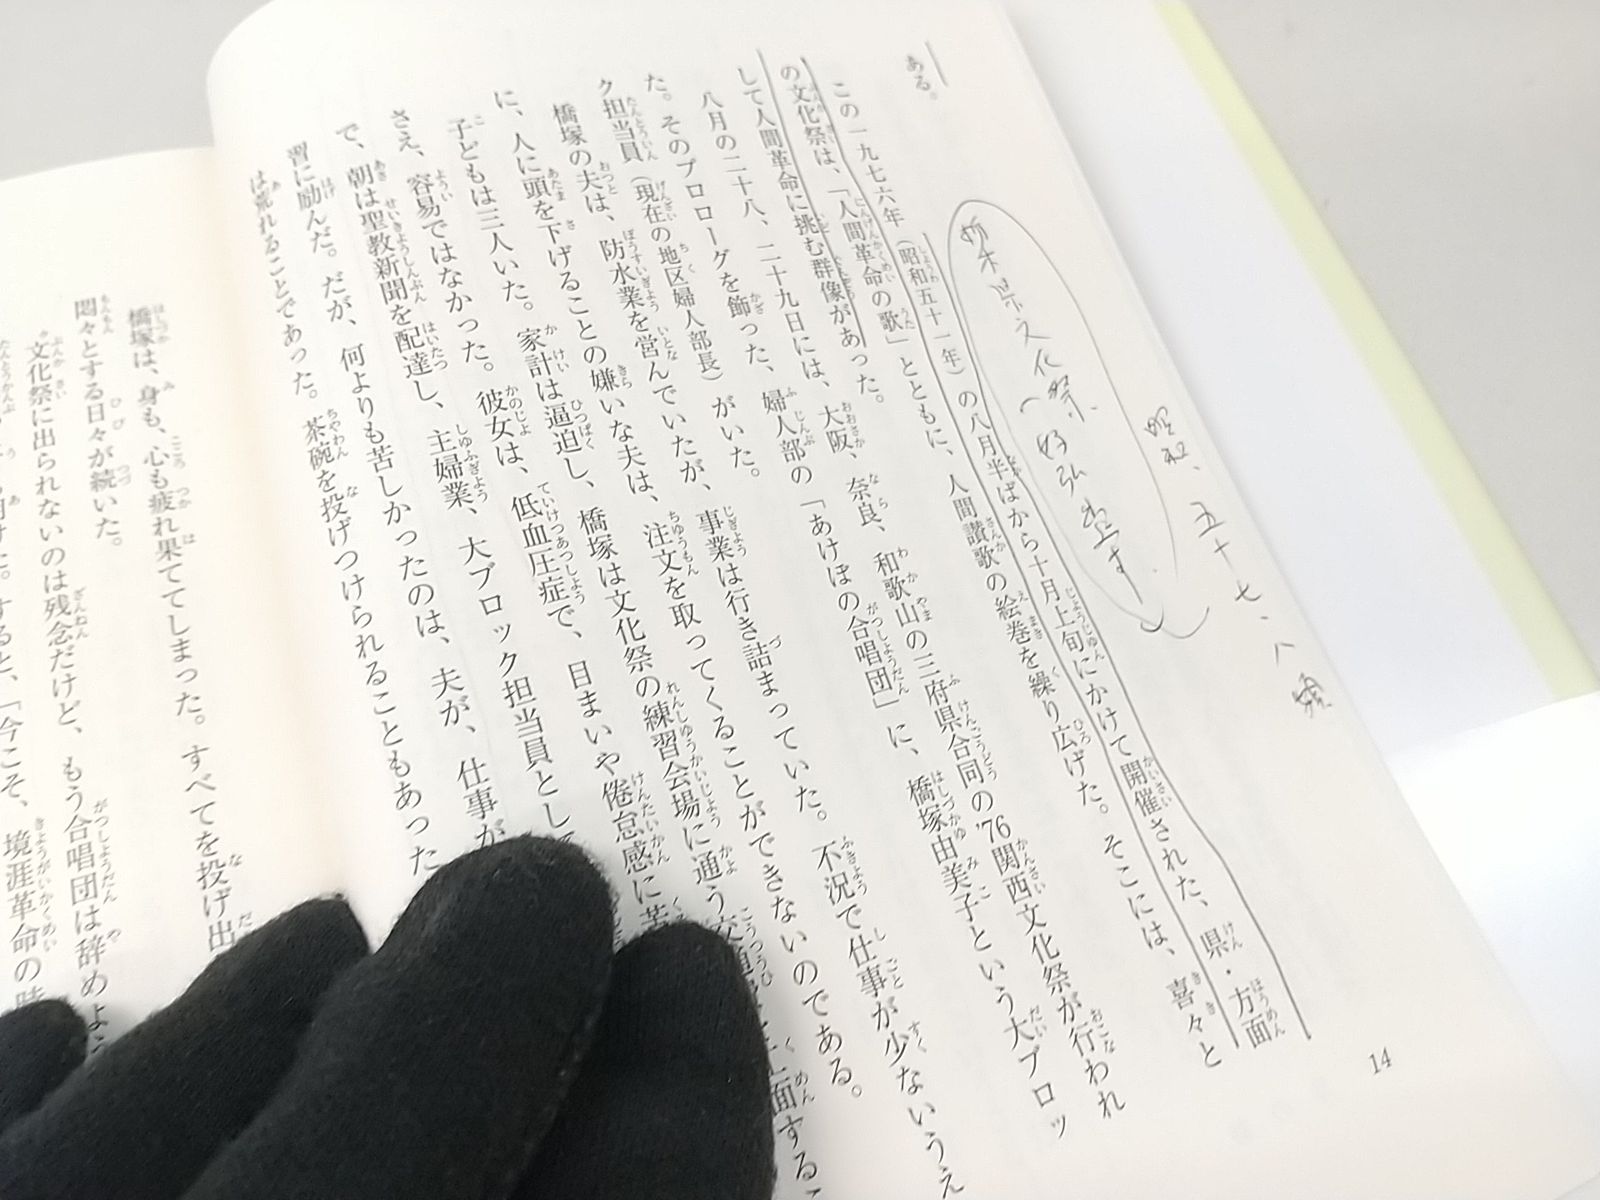 ある。
この一九七六年（昭和五十一年）の八月半ばから十月上旬にかけて開催された、県・方面
の文化祭は、「人間革命の歌」とともに、人間讃歌の絵巻を繰り広げた。そこには、喜々と
して人間革命に挑む群像があった。
八月の二十八、二十九日には、大阪、奈良、和歌山の三府県合同の'76関西文化祭が行われ
た。そのプロローグを飾った、婦人部の「あけぼの合唱団」に、橋塚由美子という大ブロッ
ク担当員（現在の地区婦人部長）がいた。
橋塚の夫は、防水業を営んでいたが、事業は行き詰まっていた。不況で仕事が少ないうえ
に、人に頭を下げることの嫌いな夫は、注文を取ってくることができないのである。
子どもは三人いた。家計は逼迫し、橋塚は文化祭の練習会場に通う交通費を工面するこ
さえ、容易ではなかった。彼女は、低血圧症で、目まいや倦怠感に苦
で、朝は聖教新聞を配達し、主婦業、大ブロック担当員として
習に励んだ。だが、何よりも苦しかったのは、夫が、仕事が
は荒れることであった。茶碗を投げつけられることもあった
橋塚は、身も、心も疲れ果ててしまった。すべてを投げ出
悶々とする日々が続いた。
〝文化祭に出られないのは残念だけど、もう合唱団は辞めよ
すると、「今こそ、境涯革命の時
14
栃木県文化祭
昭和、五十七、八頃